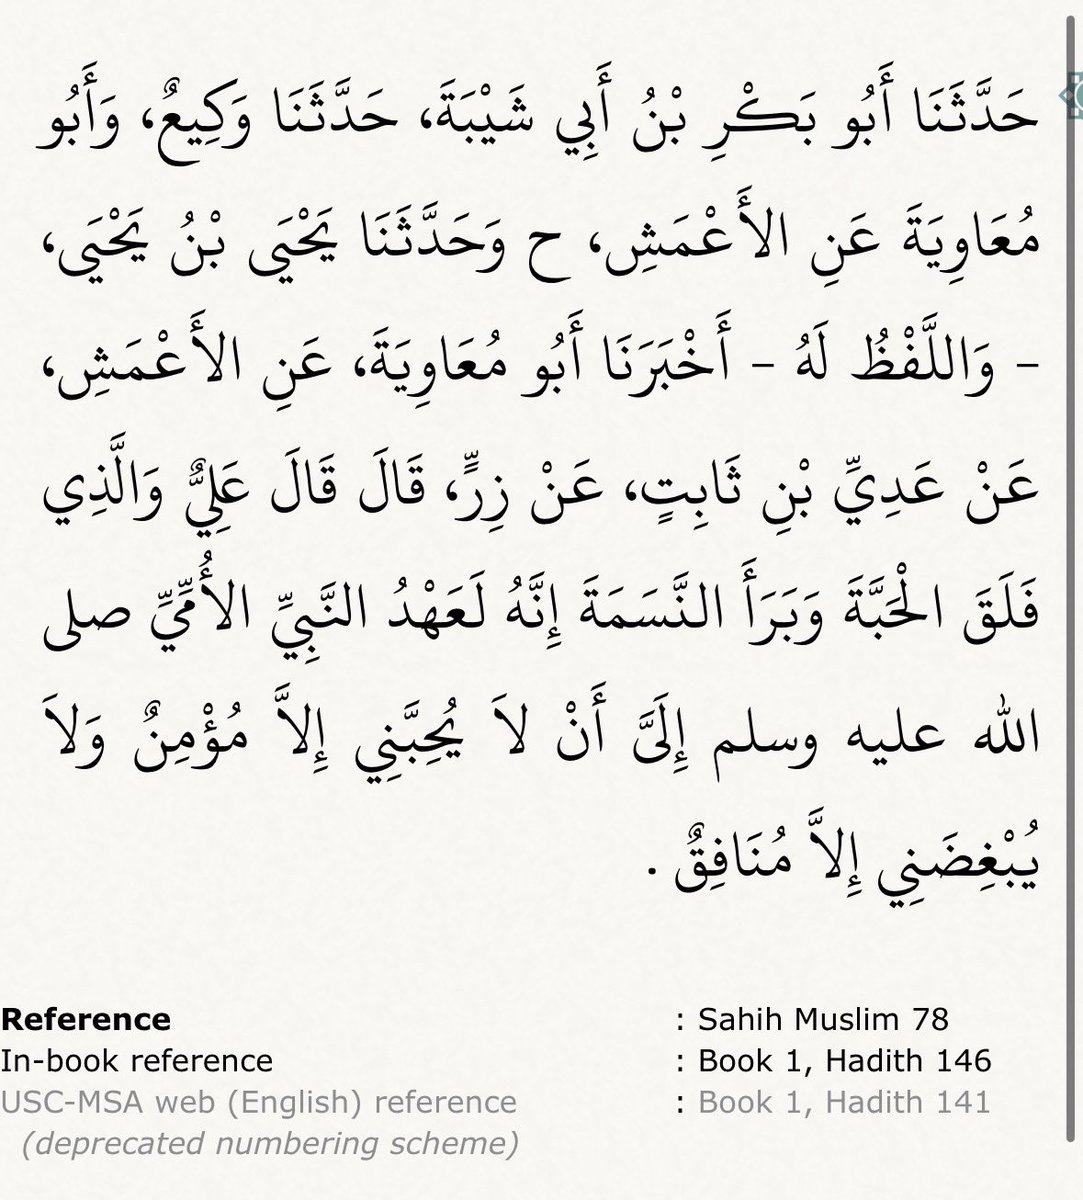 حَدَّثَنَا أَبُو بَكْرِ بْنُ أَبِي شَيْبَةَ، حَدَّثَنَا وَكِيعٌ، وَأَبُو
مُعَاوِيَةَ عَنِ الأَعْمَشِ، ح وَحَدَّثَنَا يَحْيَى بْنُ يَحْيَى،
- وَاللَّفْظُ لَهُ - أَخْبَرَنَا أَبُو مُعَاوِيَةَ، عَنِ الأَعْمَشِ،
عَنْ عَدِيِّ بْنِ ثَابِتٍ، عَنْ زِرٍّ، قَالَ قَالَ عَلِيٌّ وَالَّذِي
فَلَقَ الْحَبَّةَ وَبَرَأَ النَّسَمَةَ إِنَّهُ لَعَهْدُ النَّبِيِّ الأُمِّيِّ صلى
الله عليه وسلم إِلَىَّ أَنْ لاَ يُحِبَّنِي إِلاَّ مُؤْمِنٌ وَلاَ
يُبْغِضَنِي إِلاَّ مُنَافِقٌ .
Reference : Sahih Muslim 78
In-book reference : Book 1, Hadith 146
USC-MSA web (English) reference : Book 1, Hadith 141
(deprecated numbering scheme)